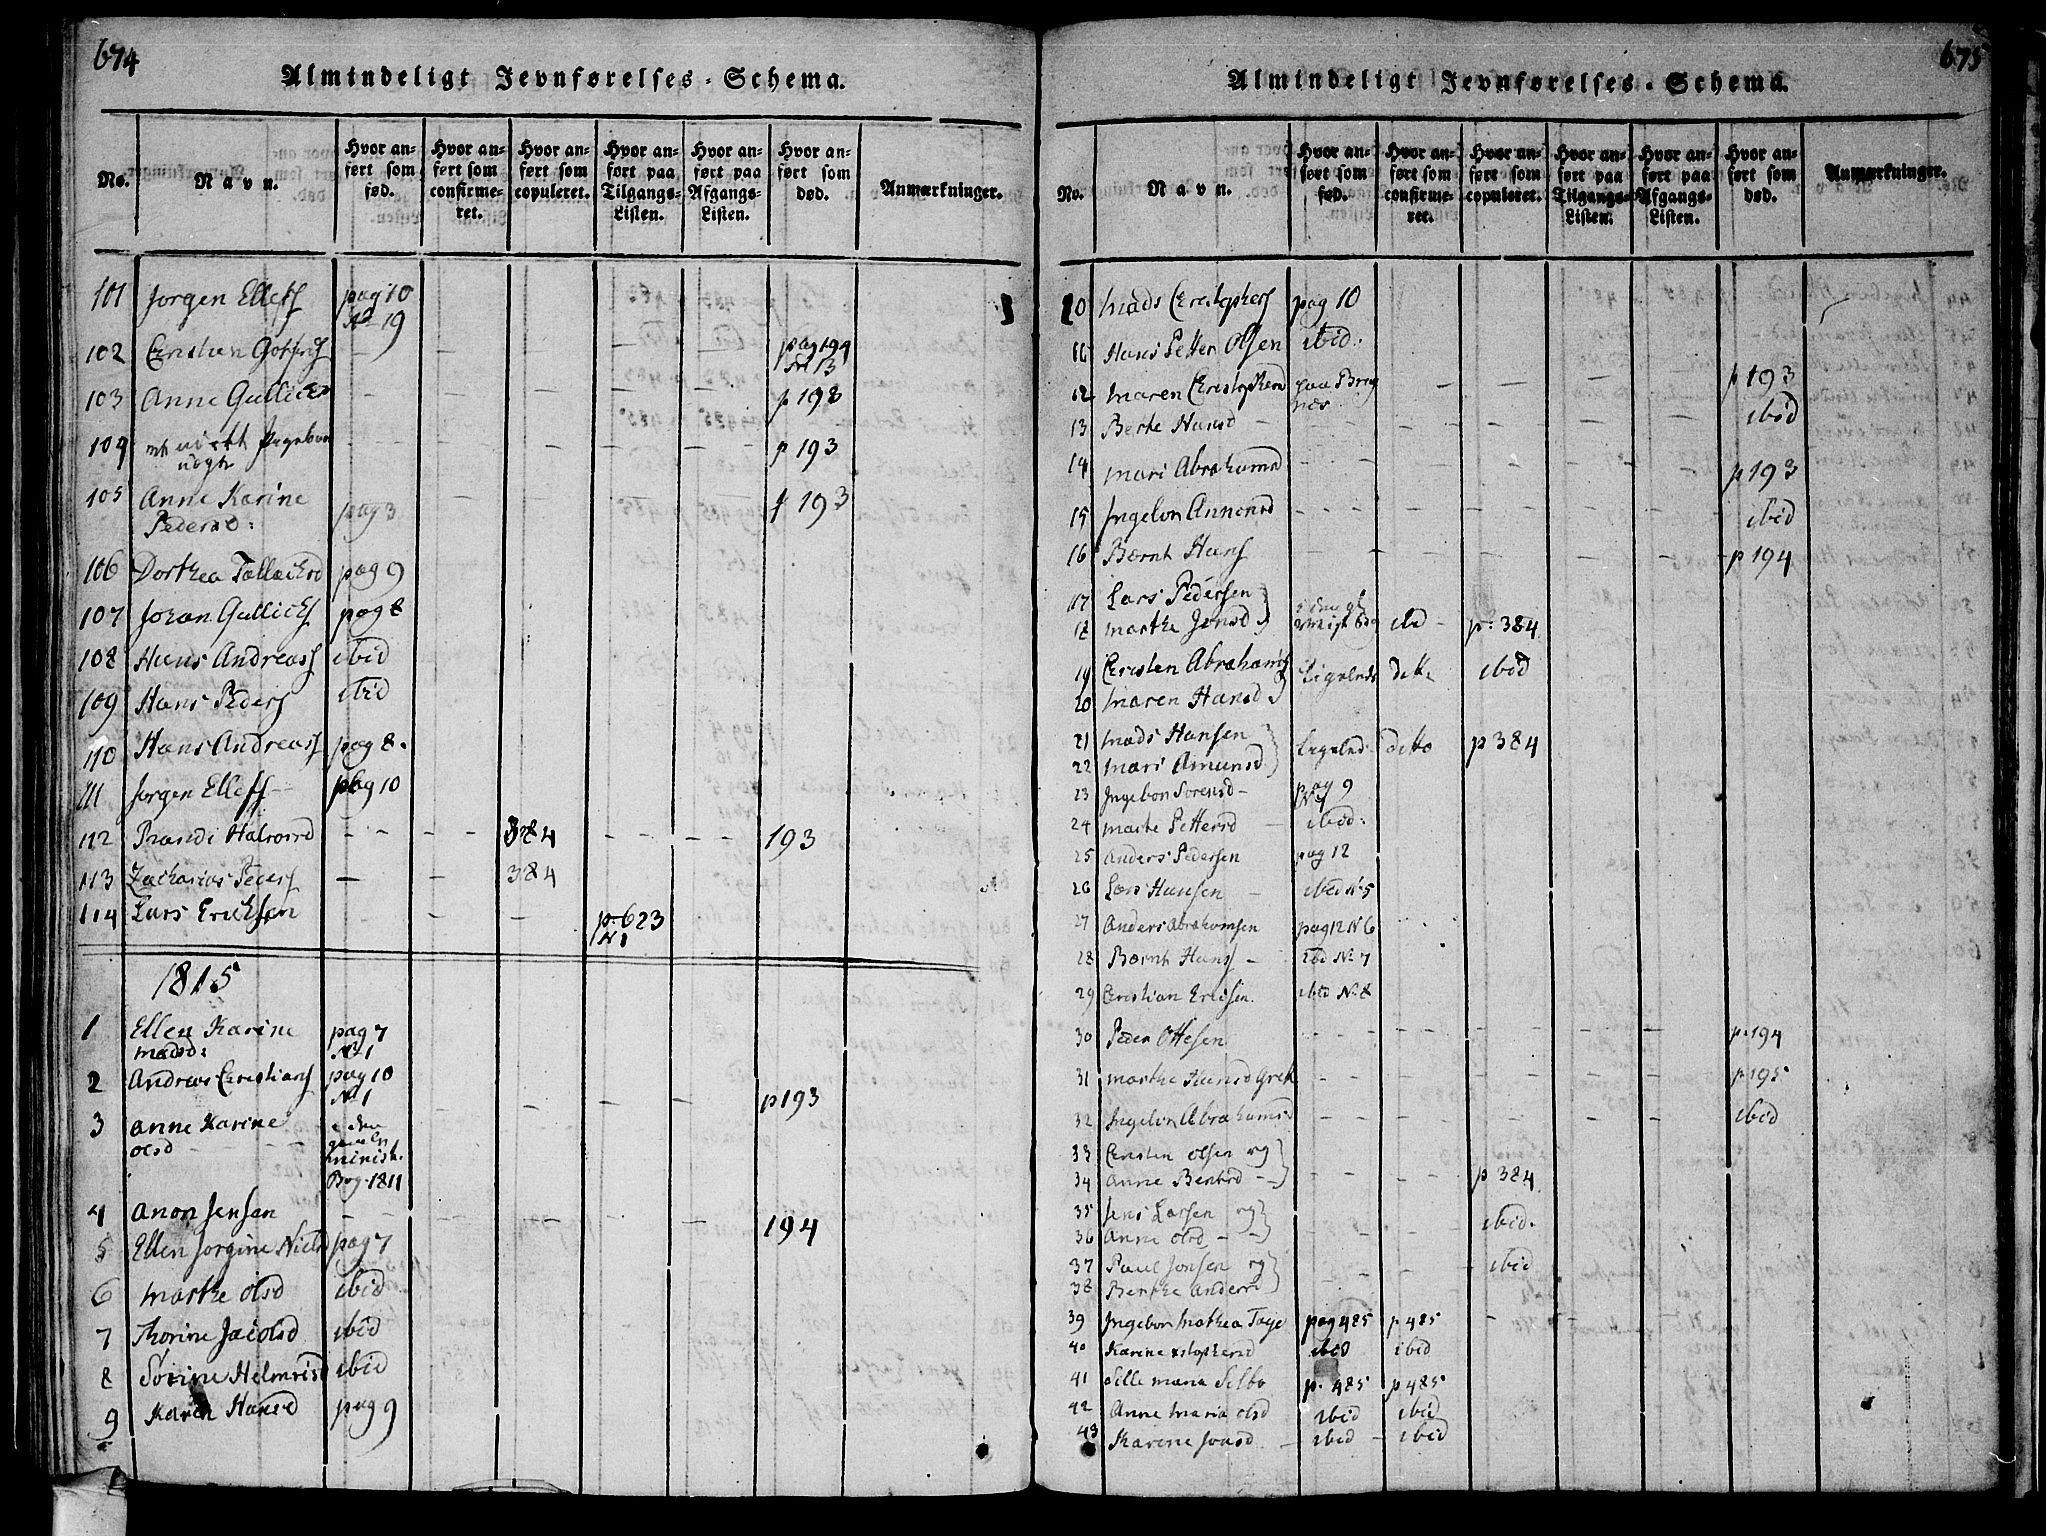 674
Almindeligt Jevnførelses-Schema.
No.
Navn.
Hvor anført som fød.
Hvor anført som confirmeret.
Hvor anført som copuleret.
Hvor anført paa Tilgangs-Listen.
Hvor anført paa Afgangs-Listen.
Hvor anført som død.
Anmærkninger.
101 Jorgen Ellefs pag 10
No 19
102 Christian — — pag 194
No 13
103 Anne Gullichs — — — — — p 198
104 — — — — — p 193
105 Anne Karine
Pedersd: pag 3 — — p 193
106 Dorthea Tallachsd pag 9
107 Johan Gullichs pag 8
108 Hans Andreass ibid
109 Hans Peders ibid
110 Hans Andreass pag 8.
111 Jorgen Ellefs — pag 10
112 Randi Halvorsd — — — — 384 — — — — 193
113 Zacharias Peders — — 384
114 Lars Erichsen — — p. 623
No 1
1815
1 Ellen Karine pag 7
madsd: No 1
2 Andreas Christians pag 10
No 1 — — — — p 193
3 Anne Karine i den
olsd — — gamle
minist.
Bog 1811
4 Anon Jensen — — — — — — 194
5 Ellen Jorgine Nielsd pag 7
6 Marthe olsd ibid
7 Thorine Jacobsd ibid
8 Sørine Helmersd ibid
9 Karen Hansd pag 9
675
Almindeligt Jevnførelses-Schema.
No.
Navn.
Hvor anført som fød.
Hvor anført som confirmeret.
Hvor anført som copuleret.
Hvor anført paa Tilgangs-Listen.
Hvor anført paa Afgangs-Listen.
Hvor anført som død.
Anmærkninger.
10 Mads Christophers pag 10
11 Hans Petter Olsen ibid:
12 Maren Christophersd paa Brag — — — p 193
næs
13 Berte Hansd — — — ibid
14 Mari Abrahamsd — — — — — p 193
15 Ingebor Annonsd — — — — — ibid
16 Bernt Hans — — — — — p 194
17 Lars Pedersen
18 Marthe Jensd — p: 384
19 Christen Abrahams Ligeleds ditto ibid
20 Maren Hansd
21 Mads Hansen Ligeleds ditto p 384
22 Mari Amunsd
23 Ingebor Sorensd — pag 9
24 Marte Pettersd — ibid:
25 Anders Pedersen pag 12
26 Lars Hansen — ibid N 5
27 Anders Abrahamsen pag 12 N 6
28 Bernt Hans — ibid No 7
29 Christian Ericsen. ibid No 8
30 Peder Ottesen — — — — — p. 194
31 Marthe Hansd — — — — — p 195
32 Ingebor Abrahamsd — — — — — ibid
33 Christen Olsen og
34 Anne Berntsd — — — — p 384
35 Jens Larsen og
36 Anne olsd — — — — ibid.
37 Paul Jonsen og
38 Berthe Andersd — — — — ibid
39 Ingebor Mathea Tage pag 485 p 485 —
40 Karine xstophersd ibid ibid
41 Sille Maria Selbo p. 485 p 485
42 Anne Maria olsd ibid ibid
43 Karine Jonsd — ibid — ibid